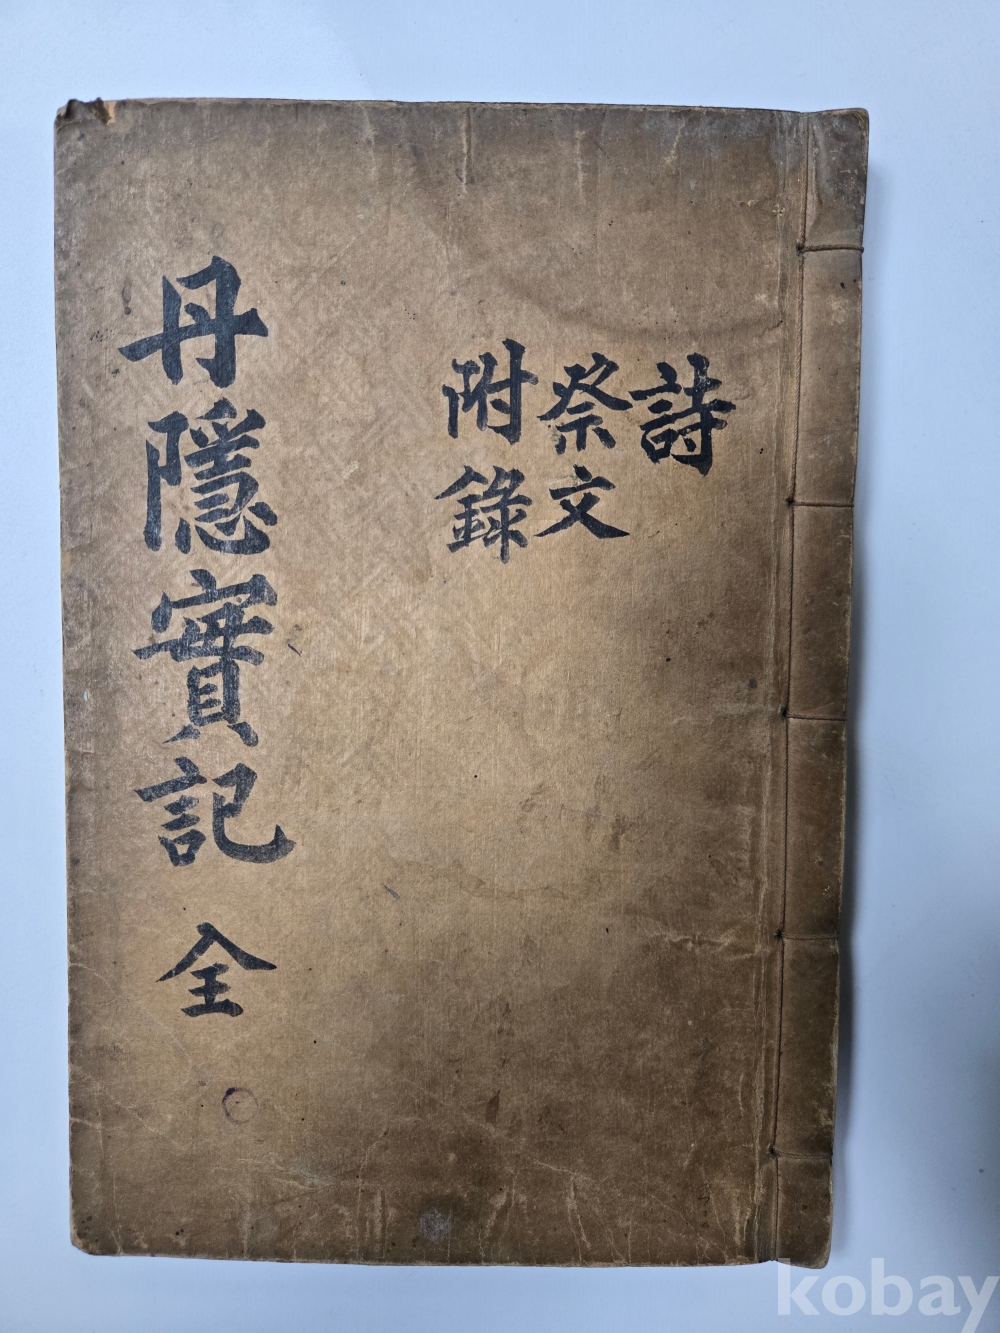 詩
祭文
附錄
丹隱實記 全
kobay